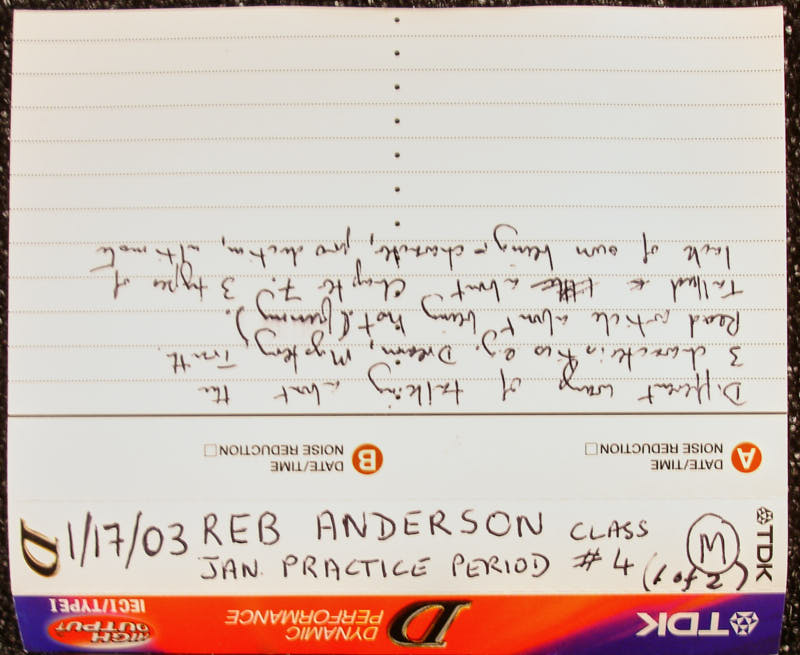 TDK D DYNAMIC PERFORMANCE HIGH OUTPUT IECI/TYPE I
TDK
D
1/17/03 REB ANDERSON CLASS M
JAN. PRACTICE PERIOD #4 (2 of 1)
A DATE/TIME
NOISE REDUCTION
B DATE/TIME
NOISE REDUCTION
Different ways of talking about the
3 characteristics e.g. Dream, Mystery, Truth.
Read article about being hot (funny).
Talked about Chapter 7. 3 types of
lack of own being = character, production, ultimate